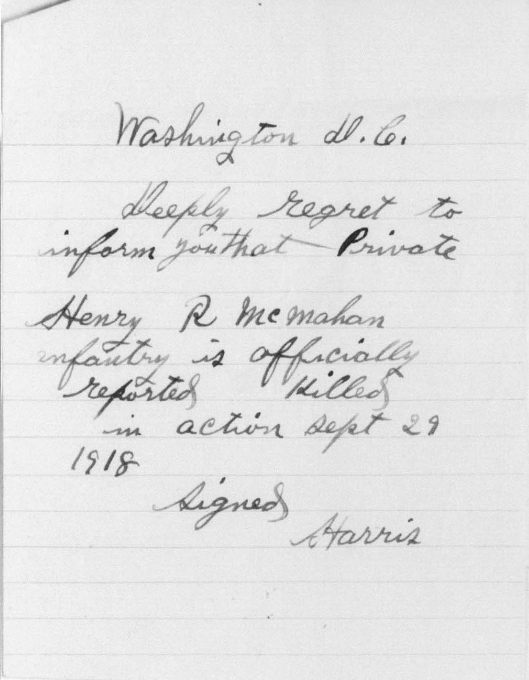 Washington D.C.
Deeply regret to
inform you that Private
Henry R McMahan
infantry is officially
reported Killed
in action Sept 29
1918
Signed
Harris